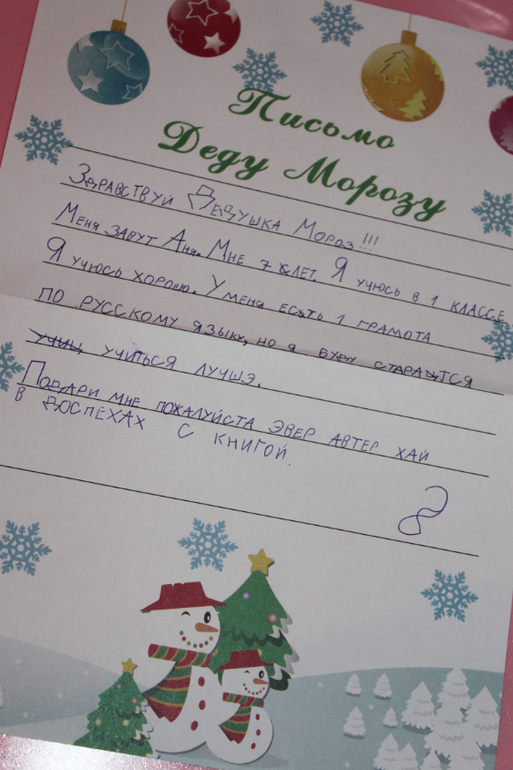 Письмо
Деду Морозу
Здравствуй Дедушка Мороз!!!
Меня завут Аня. Мне 7 лет. Я учюсь в 1 классе
Я учюсь хорошо. У меня есть 1 грамота
по русскому языку, но я буду старатся
учиться лучшэ.
Подари мне пожалуйста Эвер Автер Хай
в доспехах с книгой.